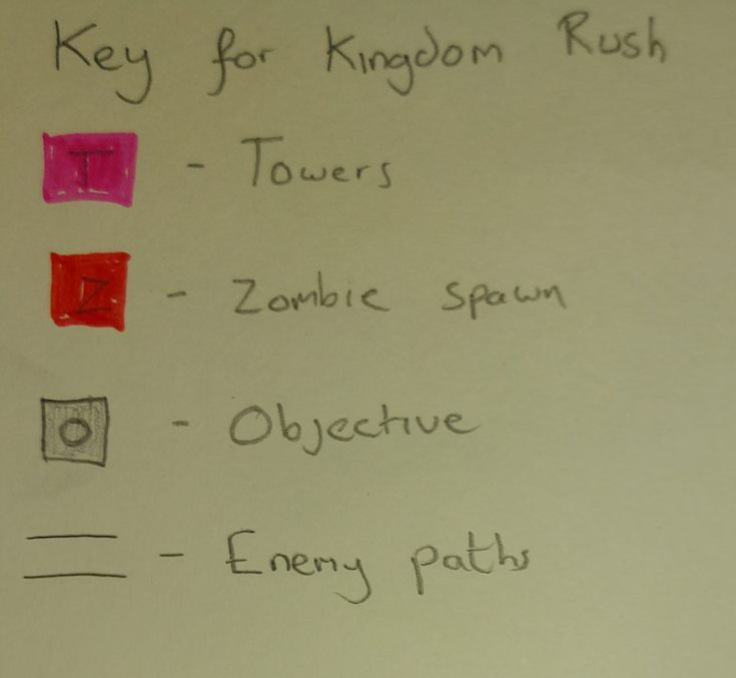 Key for Kingdom Rush
T - Towers
Z - Zombie spawn
O - Objective
- Enemy paths